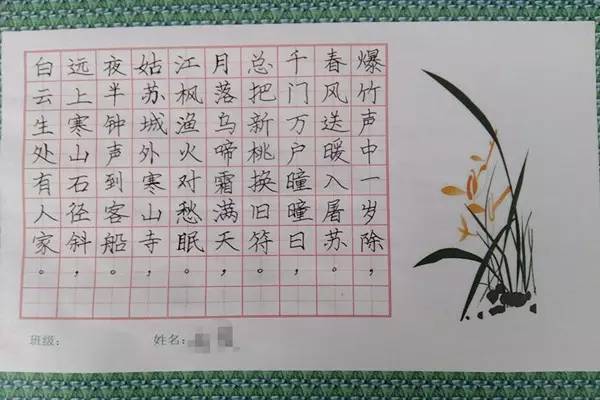 爆竹声中一岁除，
春风送暖入屠苏。
千门万户瞳瞳日，
总把新桃换旧符。
月落乌啼霜满天，
江枫渔火对愁眠。
姑苏城外寒山寺，
夜半钟声到客船。
远上寒山石径斜，
白云生处有人家。
班级：
姓名：